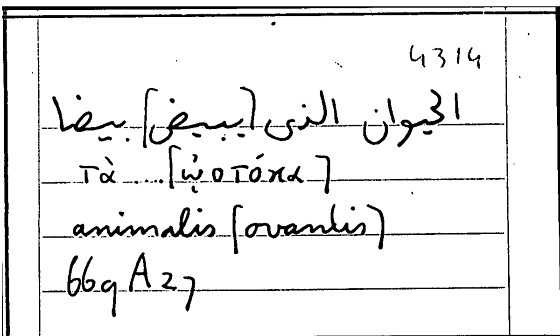 4314
الحيوان الذى [يبيض] بيضا
τὰ ... [ᾠοτόκα]
animalis [ovantis]
669 A 27